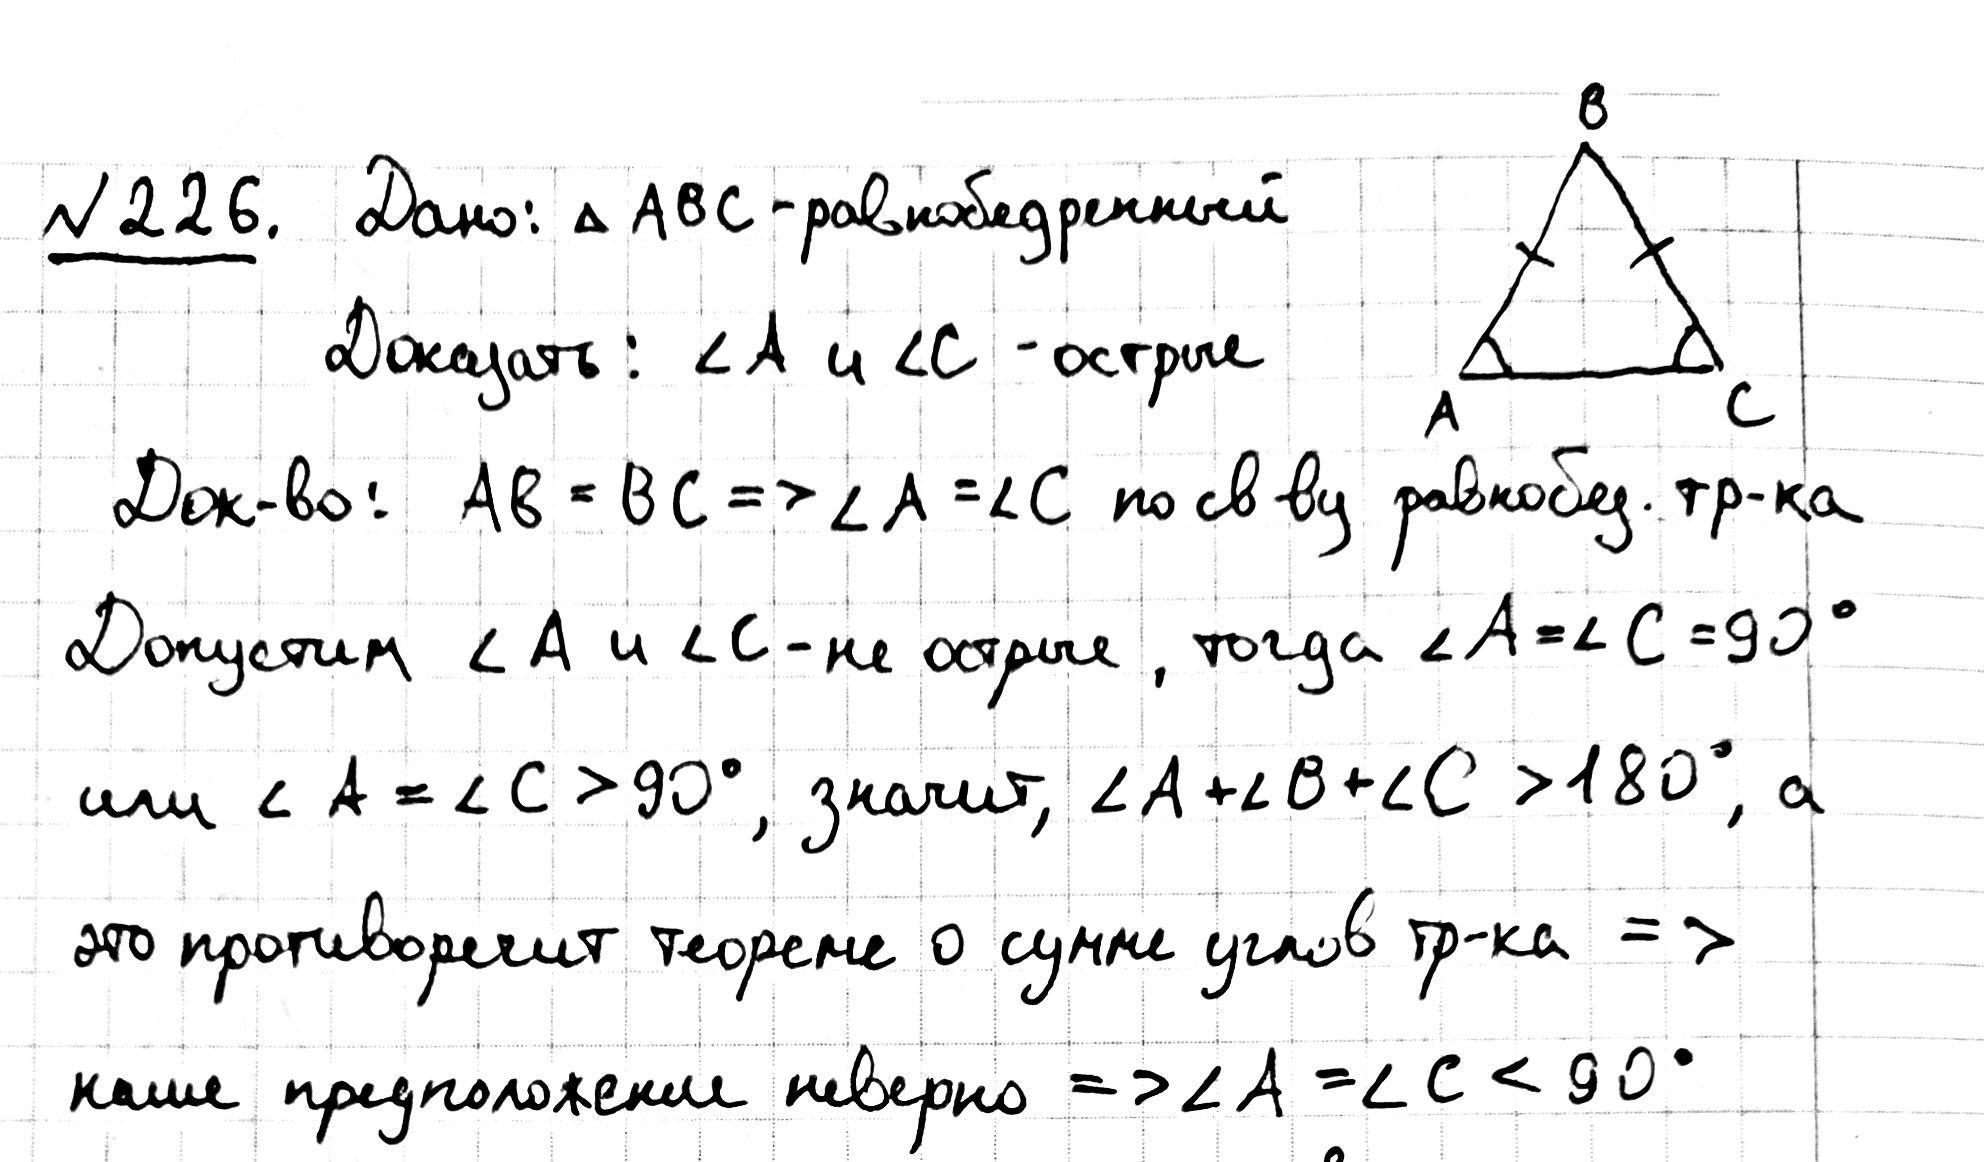 B
№226. Дано: △ ABC - равнобедренный
Доказать: ∠A и ∠C - острые
A C
Док-во: AB = BC => ∠A = ∠C по св ву равнобед. тр-ка
Допустим ∠A и ∠C - не острые, тогда ∠A = ∠C = 90°
или ∠A = ∠C > 90°, значит, ∠A + ∠B + ∠C > 180°, а
это противоречит теореме о сумме углов тр-ка =>
наше предположение неверно => ∠A = ∠C < 90°